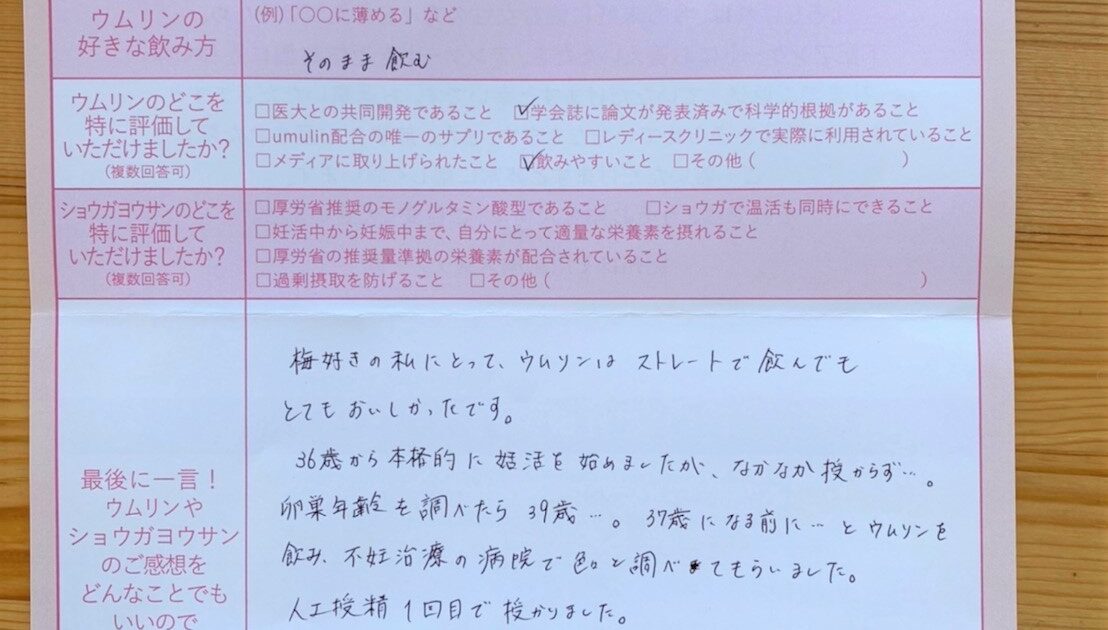 ウムリンの
好きな飲み方
(例)「○○に薄める」など
そのまま飲む
ウムリンのどこを
特に評価して
いただけましたか?
(複数回答可)
□医大との共同開発であること ☑学会誌に論文が発表済みで科学的根拠があること
□umulin配合の唯一のサプリであること □レディースクリニックで実際に利用されていること
□メディアに取り上げられたこと ☑飲みやすいこと □その他( )
ショウガヨウサンのどこを
特に評価して
いただけましたか?
(複数回答可)
□厚労省推奨のモノグルタミン酸型であること □ショウガで温活も同時にできること
□妊活中から妊娠中まで、自分にとって適量な栄養素を摂れること
□厚労省の推奨量準拠の栄養素が配合されていること
□過剰摂取を防げること □その他( )
最後に一言!
ウムリンや
ショウガヨウサン
のご感想を
どんなことでも
いいので
梅好きの私にとって、ウムリンは ストレートで飲んでも
とてもおいしかったです。
36歳から本格的に妊活を始めましたが、なかなか授からず…。
卵巣年齢を調べたら39歳…。37歳になる前に…とウムリンを
飲み、不妊治療の病院で色々と調べてもらいました。
人工授精1回目で授かりました。